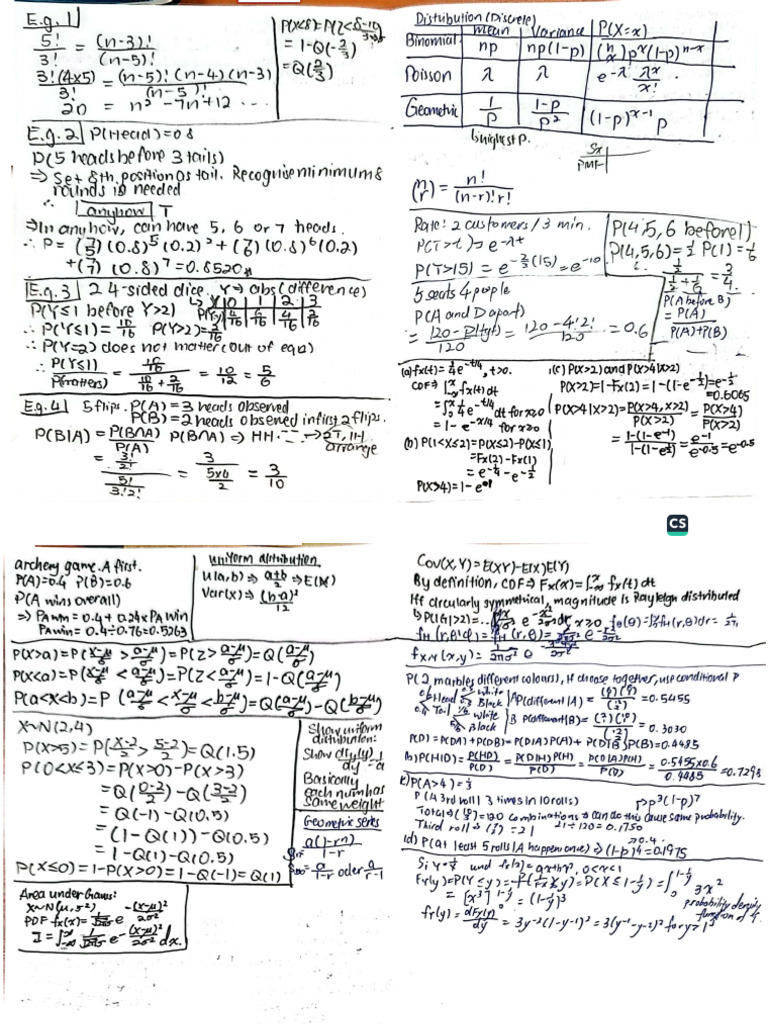 E.g. 1
5!/3! = (n-3)!/(n-5)!
3!(4x5)/3! = (n-5)!(n-4)(n-3)/(n-5)!
20 = n² - 7n + 12 ...
= 1-Q(-2/3)
= Q(2/3)
E.g. 2 P(Head)=0.8
P(5 heads before 3 tails)
⇒ Set 8th position as tail. Recognise minimum 8
rounds is needed
anyhow T
⇒ In anyhow, can have 5, 6 or 7 heads.
∴ P = (7 5)(0.8)⁵(0.2)² + (7 6)(0.8)⁶(0.2)
+ (7 7)(0.8)⁷ = 0.8520
E.g. 3 2 4-sided dice. Y → abs(difference)
Y 0 1 2 3
P(Y=y) 4/16 6/16 4/16 2/16
P(Y≤1 before Y>2)
∴ P(Y≤1) = 10/16 P(Y>2) = 2/16
∴ P(Y=2) does not matter (out of eqn)
∴ P(Y≤1)/P(matters) = (10/16)/(10/16 + 2/16) = 10/12 = 5/6
E.g. 4 5 flips. P(A) = 3 heads observed
P(B) = 2 heads observed in first 2 flips.
P(B|A) = P(B∩A)/P(A) P(B∩A) ⇒ HH _ _ _ → 2T, 1H
arrange
= (3!/2!)/(5!/3!2!) = 3/(5x4/2) = 3/10
Distribution (Discrete) mean Variance P(X=x)
Binomial np np(1-p) (n x)pˣ(1-p)ⁿ⁻ˣ
Poisson λ λ e^-λ λˣ/x!
Geometric 1/p 1-p/p² (1-p)ˣ⁻¹ p
highest p.
Sx
PMF
(n r) = n!/(n-r)!r!
Rate: 2 customers / 3 min.
P(T>t) = e^-λt
P(T>15) = e^-2/3(15) = e^-10
P(4,5,6 before 1)
P(4,5,6) = 1/2 P(1) = 1/6
(1/2)/(1/2 + 1/6) = 3/4
5 seats 4 people
P(A and D apart)
= 120-P(tgt)/120 = 120-4!2!/120 = 0.6
P(A before B)
= P(A)/P(A)+P(B)
(a) fx(t) = 1/4 e^-t/4, t>0.
CDF ⇒ ∫ fx(t) dt
= ∫ 1/4 e^-t/4 dt for x≥0
= 1 - e^-x/4 for x≥0
(b) P(1<X≤2) = P(X≤2)-P(X≤1)
= Fx(2) - Fx(1)
= e^-1/4 - e^-1/2
(c) P(X>2) and P(X>4|X>2)
P(X>2) = 1-Fx(2) = 1-(1-e^-1/2) = e^-1/2
= 0.6065
P(X>4|X>2) = P(X>4, X>2)/P(X>2) = P(X>4)/P(X>2)
= 1-(1-e^-1)/1-(1-e^-1/2) = e^-1/e^-0.5 = e^-0.5
CS
archery game. A first.
P(A)=0.4 P(B)=0.6
P(A wins overall)
⇒ PAwin = 0.4 + 0.24 x PA win
PAwin = 0.4÷0.76 = 0.5263
Uniform distribution
U(a,b) ⇒ a+b/2 ⇒ E(X)
Var(X) ⇒ (b-a)²/12
P(X>a) = P(x-μ/σ > a-μ/σ) = P(Z > a-μ/σ) = Q(a-μ/σ)
P(X<a) = P(x-μ/σ < a-μ/σ) = P(Z < a-μ/σ) = 1-Q(a-μ/σ)
P(a<x<b) = P(a-μ/σ < x-μ/σ < b-μ/σ) = Q(a-μ/σ) - Q(b-μ/σ)
X~N(2,4)
P(X>5) = P(X-2/2 > 5-2/2) = Q(1.5)
P(0<X≤3) = P(X>0) - P(X>3)
= Q(0-2/2) - Q(3-2/2)
= Q(-1) - Q(0.5)
= (1-Q(1)) - Q(0.5)
= 1-Q(1) - Q(0.5)
P(X≤0) = 1-P(X>0) = 1-Q(-1) = Q(1)
Show uniform
distribution:
Basically
each num has
same weight
Geometric series
a(1-rⁿ)/1-r
S∞ = a/1-r oder a/r-1
Area under Gauss:
X~N(μ,σ²)
PDF fx(x) = 1/√2πσ e -(x-μ)²/2σ²
I = ∫ 1/√2πσ e -(x-μ)²/2σ² dx.
Cov(X,Y) = E(XY) - E(X)E(Y)
By definition, CDF ⇒ Fx(x) = ∫ fx(t) dt
If circularly symmetrical, magnitude is Rayleigh distributed
P(2 marbles different colours), if choose together, use conditional P
Head White
Black
Tail White
Black
P(different|A) = 0.5455
P(different|B) = 0.3030
P(D) = P(DA) + P(DB) = P(D|A)P(A) + P(D|B)P(B) = 0.4485
b) P(H|D) = P(HD)/P(D) = P(D|H)P(H)/P(D) = P(D|A)P(A)/P(D) = 0.5455x0.6/0.4485 = 0.7298
c) P(A>4) = 1/3
P(A 3rd roll | 3 times in 10 rolls) → p³(1-p)⁷
Total ⇒ (10 3) = 120 combinations ⇒ can do this cause same probability.
Third roll ⇒ (7 2) = 21 21÷120 = 0.1750
(d) P(at least 5 rolls | A happen once) ⇒ (1-p)⁴ = 0.1975
= [x³] = (1-1/y)³
probability density
function of Y.
fY(y) = dFY(y)/dy = 3y⁻²(1-y⁻¹)² = 3(y⁻¹-y⁻²)² for y>1